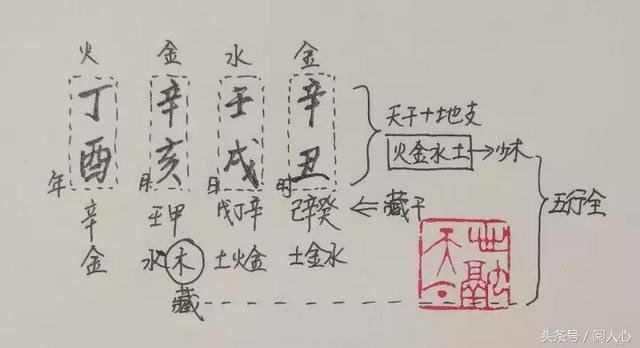 火 金 水 金
丁 辛 壬 辛
酉 亥 戌 丑
年 月 日 时
天干十地支
火金水土→少木
五行全
辛 壬甲 戊丁辛 己辛癸 ⇐ 藏干
金 水木 土火金 土金水
藏
头条号/阅人心